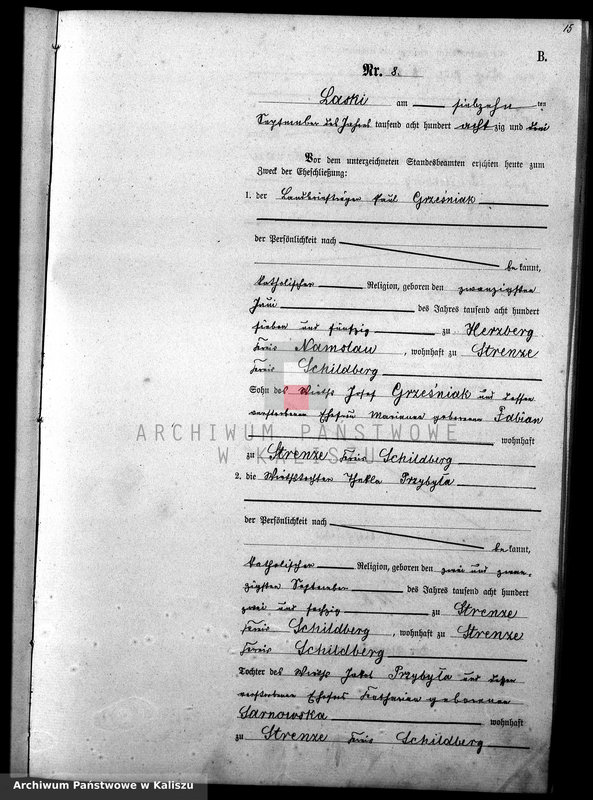 15
B.
Nr. 8.
Laski am siebzehn ten
September des Jahres tausend acht hundert acht zig und drei
Vor dem unterzeichneten Standesbeamten erschien heute zum
Zweck der Eheschließung:
1. der Landbriefträger Paul Grześniak
der Persönlichkeit nach
be kannt,
katholischer Religion, geboren den zwanzigsten
Juni des Jahres tausend acht hundert
sieben und fünfzig zu Herzberg
Kreis Namslau, wohnhaft zu Strenze
Kreis Schildberg
Sohn des Wirths Josef Grześniak und dessen
verstorbenen Ehefrau Marianna geborenen Fabian
wohnhaft
zu Strenze Kreis Schildberg
2. die Wirthstochter Thekla Przybyła
der Persönlichkeit nach
be kannt,
katholischer Religion, geboren den zwei und zwan-
zigsten September des Jahres tausend acht hundert
zwei und sechzig zu Strenze
Kreis Schildberg, wohnhaft zu Strenze
Kreis Schildberg
Tochter des Wirths Jakob Przybyła und dessen
verstorbenen Ehefrau Katharina geborenen
Sarnowska wohnhaft
zu Strenze Kreis Schildberg
ARCHIWUM PAŃSTWOWE
W KALISZU
Archiwum Państwowe w Kaliszu